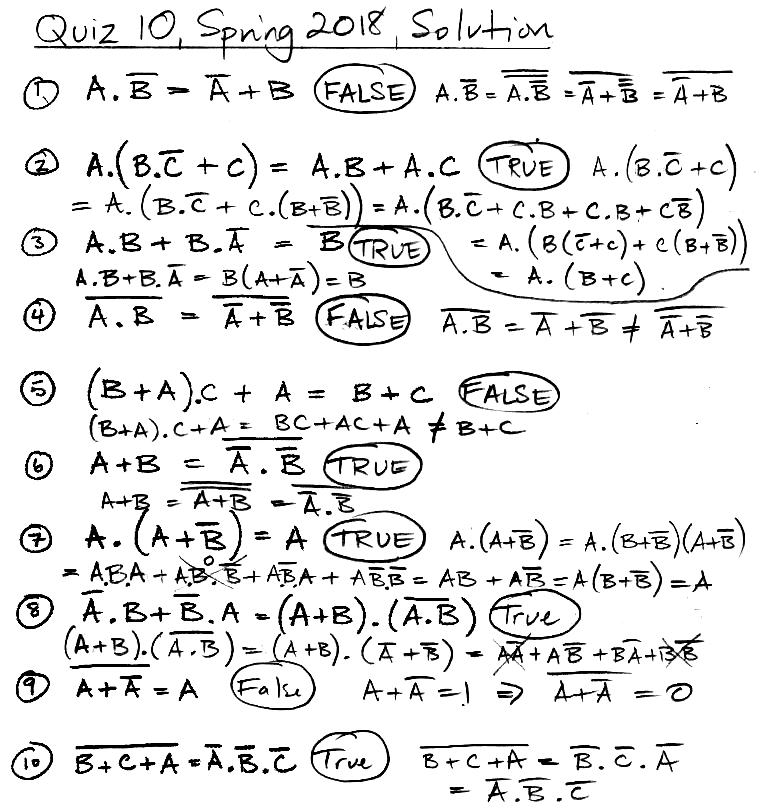 Quiz 10, Spring 2018, Solution
① A.B̅ = A̅ + B (FALSE) A.B̅ = \overline{\overline{A.B̅}} = \overline{A̅ + \overline{B̅}} = \overline{A̅+B}
② A.(B.C̅ + C) = A.B + A.C (TRUE) A.(B.C̅+C)
= A.(B.C̅ + C.(B+B̅)) = A.(B.C̅ + C.B + C.B + CB̅)
③ A.B + B.A̅ = B (TRUE) = A.(B(C̅+C) + C(B+B̅))
A.B+B.A̅ = B(A+A̅) = B = A.(B+C)
④ \overline{A.B} = \overline{A̅+B̅} (FALSE) \overline{A.B} = A̅ + B̅ ≠ \overline{A̅+B̅}
⑤ (B+A).C + A = B+C (FALSE)
(B+A).C+A = BC+AC+A ≠ B+C
⑥ A+B = \overline{A̅.B̅} (TRUE)
A+B = \overline{\overline{A+B}} = \overline{A̅.B̅}
⑦ A.(A+B̅) = A (TRUE) A.(A+B̅) = A.(B+B̅)(A+B̅)
= A.B.A + A.B.B̅ 0 + AB̅.A + AB̅.B̅ = AB + AB̅ = A(B+B̅) = A
⑧ A̅.B + B̅.A = (A+B).(\overline{A.B}) (True)
(A+B).(\overline{A.B}) = (A+B).(A̅+B̅) = AA̅ + AB̅ + BA̅ + BB̅
⑨ \overline{A+A̅} = A (False) A+A̅ = 1 ⇒ \overline{A+A̅} = 0
⑩ \overline{B+C+A} = A̅.B̅.C̅ (True) \overline{B+C+A} = B̅.C̅.A̅
= A̅.B̅.C̅